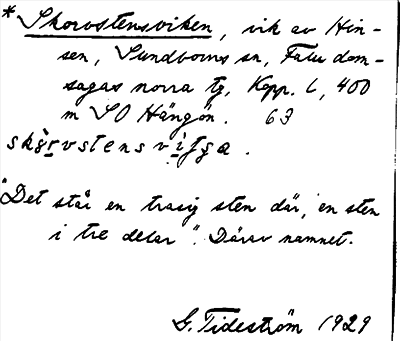 * Skorvstensviken, vik av Hin-
sen, Sundborns sn, Falu dom-
sagas norra tg, Kopp. l, 400
m SO Hängön. 63
"Det står en trasig sten där, en sten
i tre delar". Därav namnet.
G. Tideström 1929